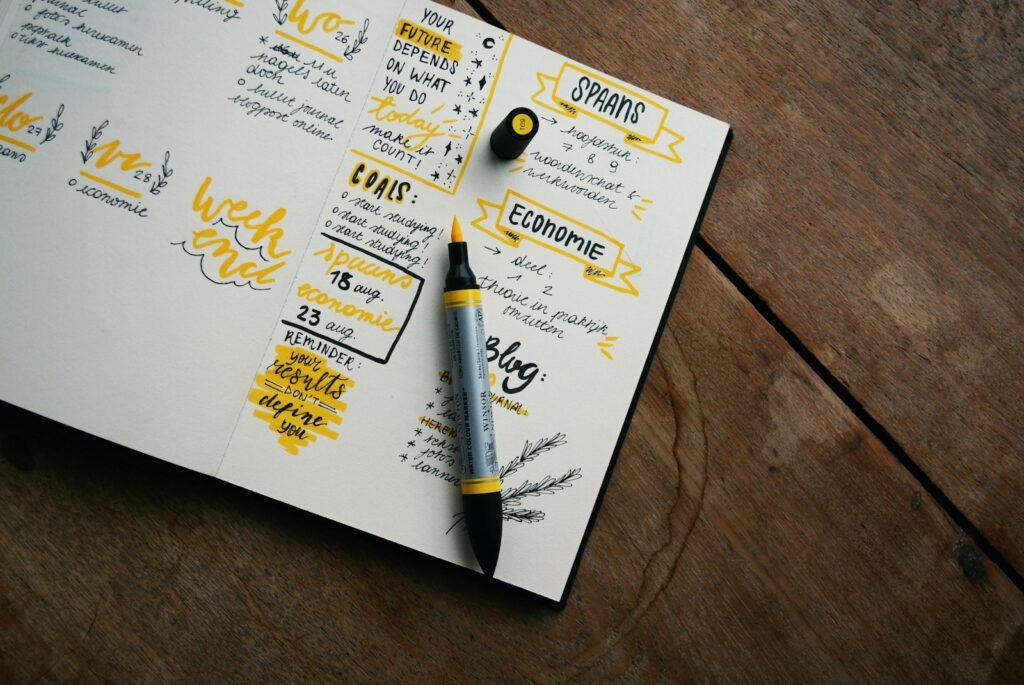 o foto's herexamen
o herexamen
wo
26
nagels laten
doen
o bullet journal
blogpost online
do
27
vr
28
o economie
week
end
YOUR
FUTURE
DEPENDS
ON WHAT
YOU DO
today
make it
COUNT!
GOALS:
o start studying!
o start studying!
o start studying!
spaans
18 aug.
economie
23 aug.
REMINDER:
your
results
DON'T
define
you
109
SPAANS
→ hoofdstuk:
7 8 9
woordenschat &
werkwoorden
ECONOMIE
→ deel:
1 2
theorie in praktijk
omzetten
Blog:
WATER COLOUR MARKER
WINSOR